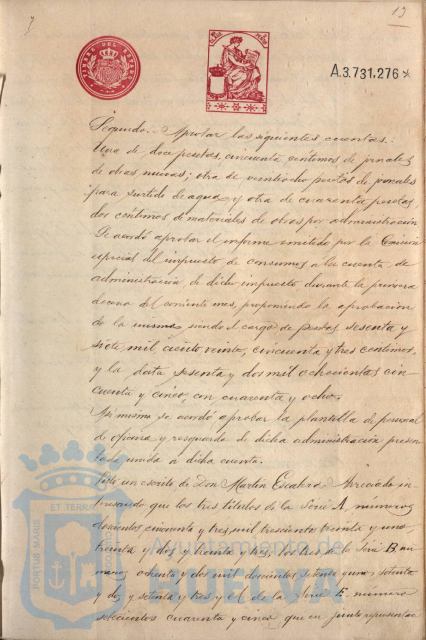 13
TIMBRE DEL ESTADO
A.3.731,276
Segundo.- Aprobar las siguientes cuentas:
Una de doce pesetas, cincuenta céntimos de jornales
de obras nuevas; otra de veintiocho pesetas de jornales
para surtido de aguas y otra de cuarenta pesetas,
dos céntimos de materiales de obras por administración
Se acordó aprobar el informe emitido por la Comisión
especial del impuesto de consumos a la cuenta de
administración de dicho impuesto durante la primera
decena del corriente mes, proponiendo la aprobación
de la misma siendo el cargo de pesetas sesenta y
siete mil, ciento veinte, cincuenta y tres céntimos,
y la data sesenta y dos mil ochocientas cin
cuenta y cinco, con cuarenta y ocho.
Asi mismo se acordó aprobar la plantilla de personal
de oficina y resguardo de dicha administración presen
tada unida a dicha cuenta.
un escrito de Don Martín
que los tres títulos de la Serie A, números
doscientos cincuenta y tres mil trescientos treinta y uno
treinta y dos y treinta y tres, los tres de la Serie B nu
meros ochenta y dos mil doscientos setenta y uno, setenta
y dos y setenta y tres y el de la Serie E, número
setecientos cuarenta y cinco que en junto representan
PORTUS MARIS ET TERRAE
Ayuntamiento de
HUELVA